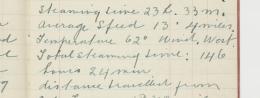 Steaming time 23 h. 33 m.
Average Speed 13 . 4 miles.
Temperature 62° Wind, West.
Total Steaming time: 146
hours 24 mins
distance travelled from